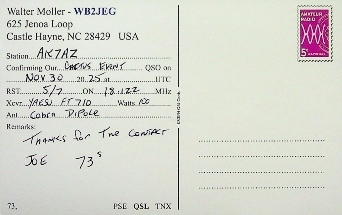 Walter Moller - WB2JEG
625 Jenoa Loop
Castle Hayne, NC 28429 USA
Station AK7AZ
Confirming Our Cactus Event QSO on
Nov 30 2025 at UTC
RST 5/7 ON 18.122 MHz
Xcvr YAESU FT 710 Watts 100
Ant Cobra Dipole
Remarks:
THANKS for The CONTACT
JOE 73s
73, PSE QSL TNX
AMATEUR
RADIO
5¢